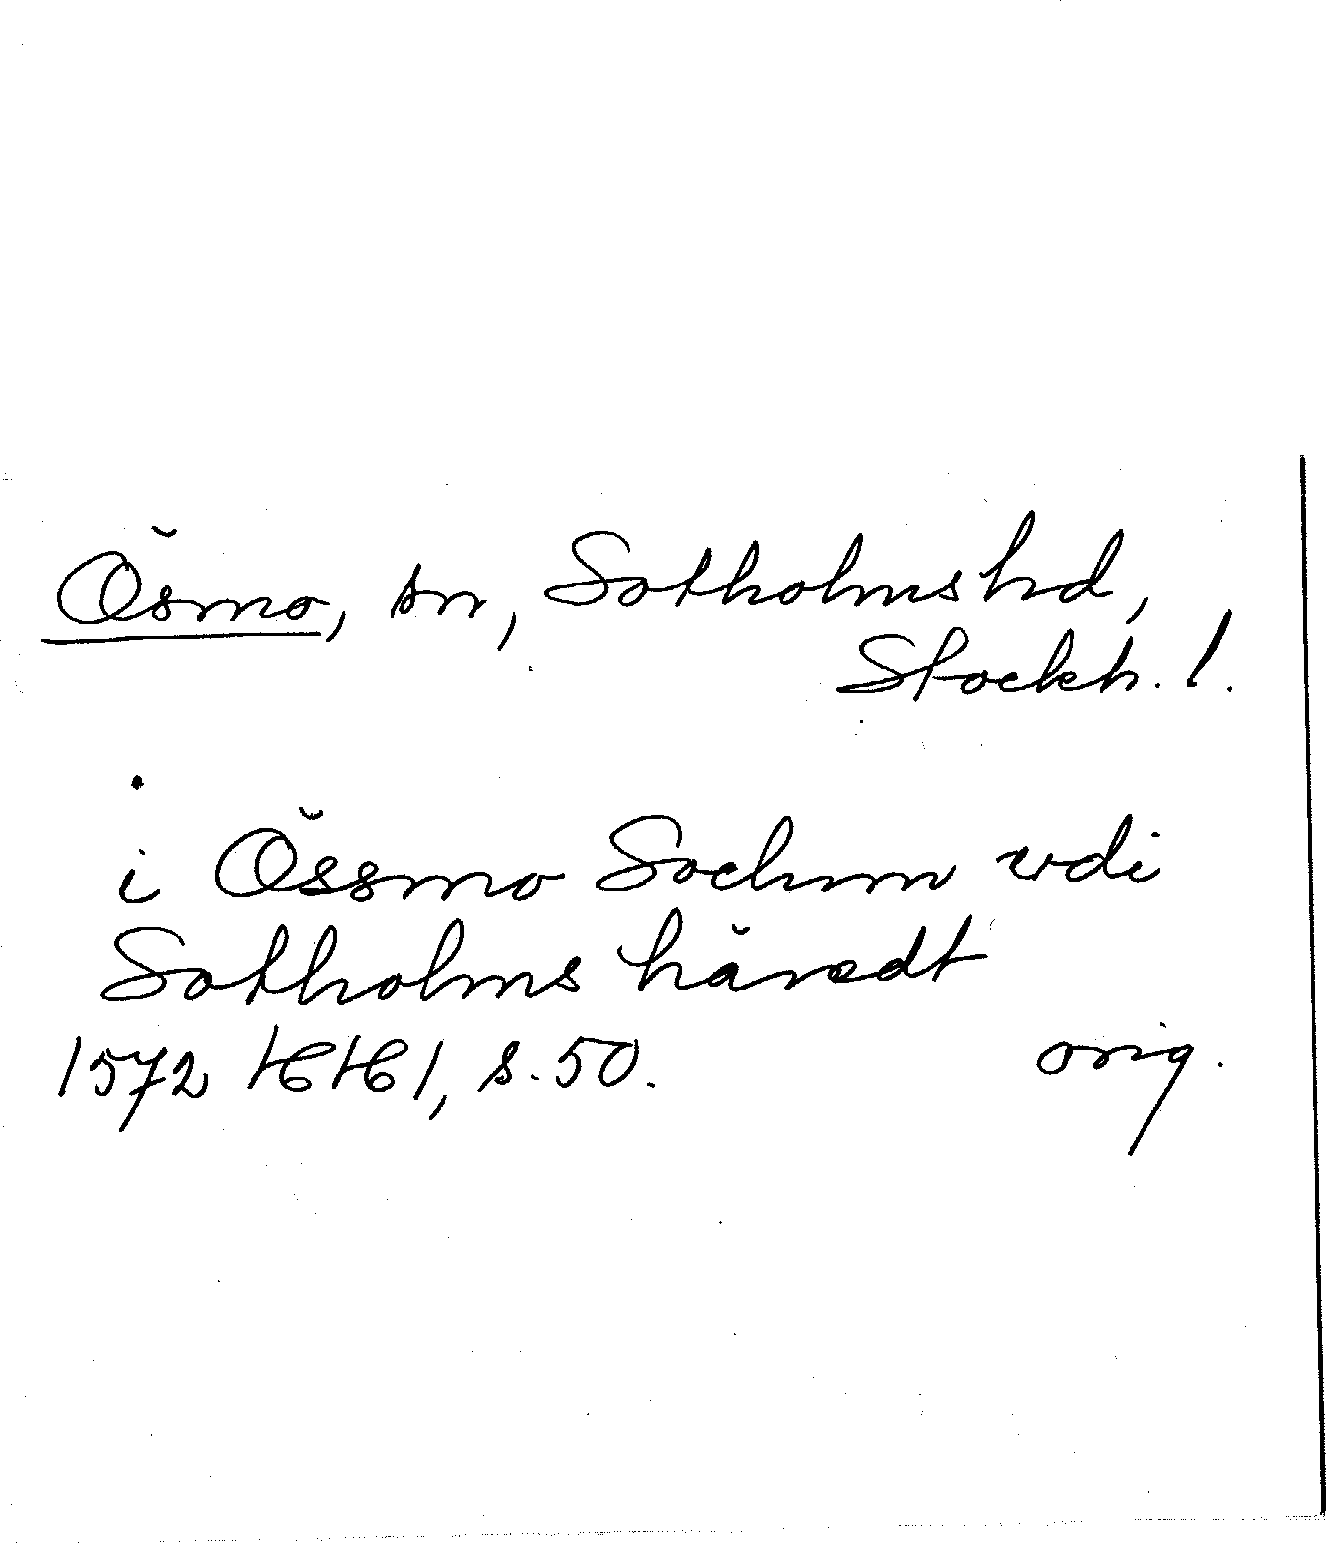 Ösmo, sn, Sotholms hd,
Stockh. l.
i Össmo Sochnn vdi
Sotholms härædt
1572 HH 1, s. 50. orig.